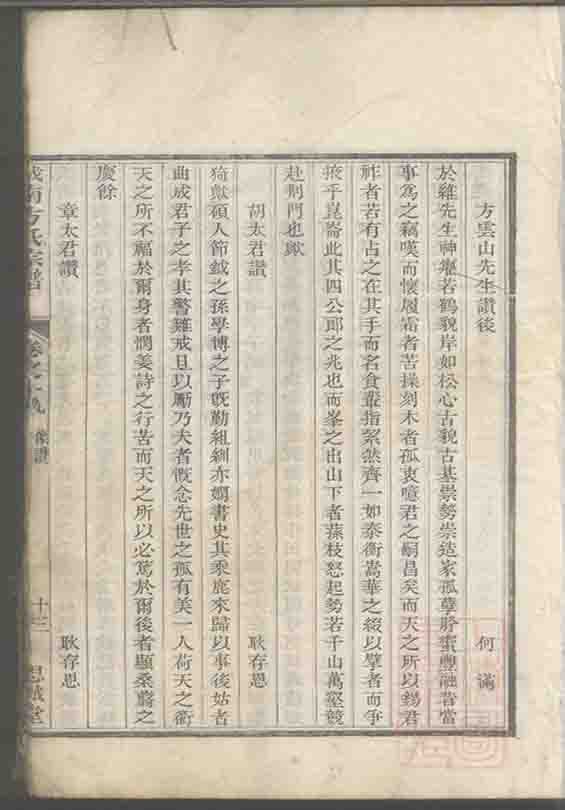 方雲山先生讚後 何滿
於維先生神癯若鶴貌岸如松心古貌古基崇勢崇造家孤孽胼豐融昔當
事為之竊嘆而懷履霜者苦操刻木者孤衷噫君之嗣昌矣而天之所以錫君
祚者若有占之在其手而名食叢指纍然齊一如泰衡嵩華之綴以擘者而爭
掖乎崑崙此其四公郎之兆也而峯之出山下者蓀枝怒起勢若千山萬壑競
赴荆門也歟
胡太君讚 耿存恩
猗歟碩人節鉞之孫學博之子旣勤組紃亦嫺書史其乘鹿來歸以事後姑者
曲成君子之孝其警雞戒旦以勵乃夫者慨念先世之孤有美一人荷天之衢
天之所不福於爾身者憫姜詩之行苦而天之所以必篤於爾後者顯桑蔭之
慶餘
章太君讚 耿存恩
南方氏宗譜 卷之十九 像讚 十三 思誠堂